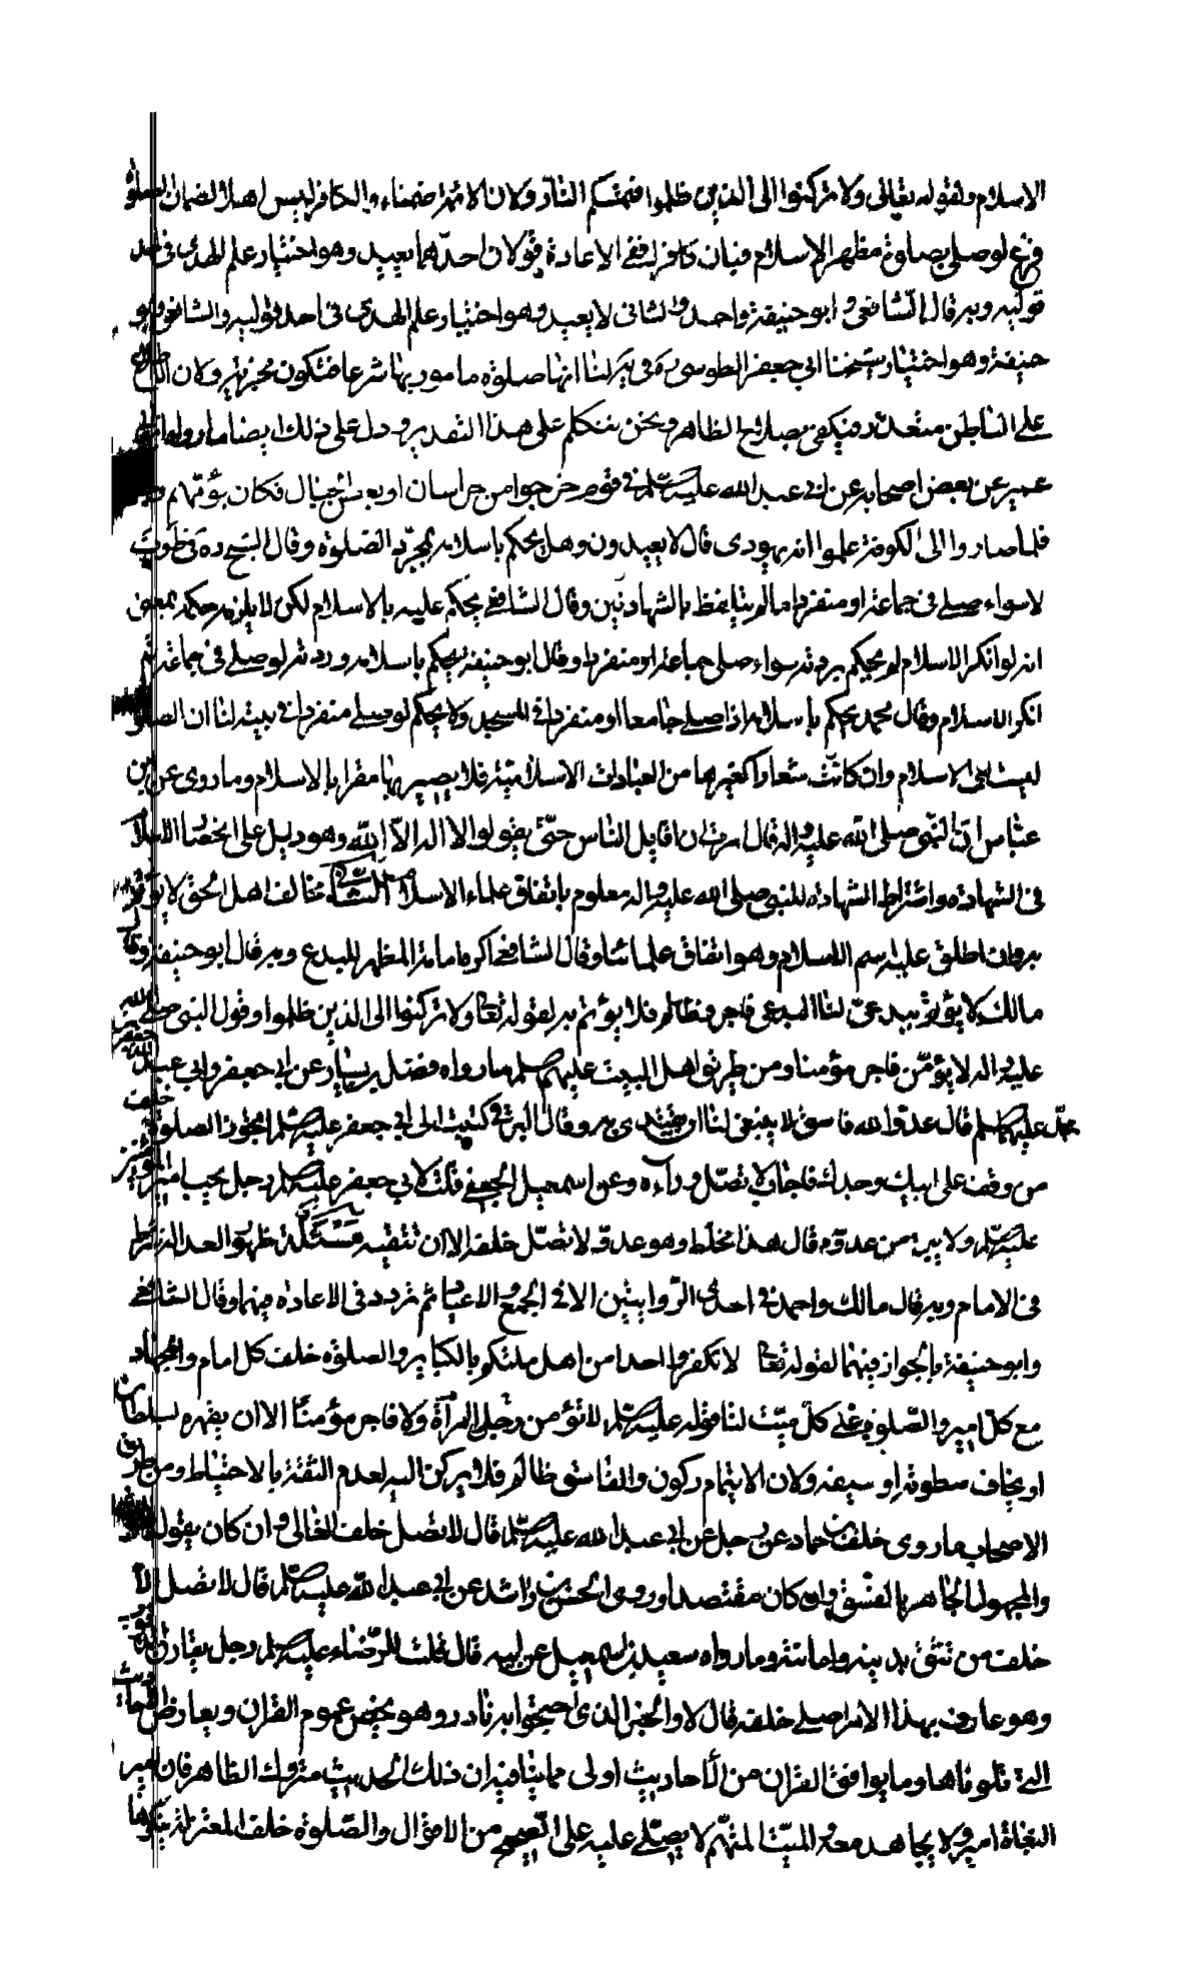 الاسلام ولقوله تعالى ولا تركنوا الى الذين ظلموا فتمسكم النار ولان الائمة ضمناء والكافر ليس اهلا لضمان الصلوة
فرع لو صلى بصلوة مظهر الاسلام فبان كافرا ففي الاعادة قولان احدهما يعيد وهو اختيار علم الهدى في احد
قوليه وبه قال الشافعي وابو حنيفة واحمد والثاني لا يعيد وهو اختيار علم الهدى في احد قوليه والشافعي وابو
حنيفة وهو اختيار شيخنا ابي جعفر الطوسي ره في ية لنا انها صلوة مامور بها شرعا فتكون مجزية ولان الاطلاع
على الباطن متعذر فيكفي صلاح الظاهر ونحن نتكلم على هذا التقدير ودل على ذلك ايضا ما رواه ابن ابي
عمير عن بعض اصحابه عن ابي عبد الله عليه السلم في قوم خرجوا من خراسان او بعض الجبال فكان يؤمهم رجل
فلما صاروا الى الكوفة علموا انه يهودي قال لا يعيدون وهل يحكم باسلامه بمجرد الصلوة وقال الشيخ ره في ف وط
لا سواء صلى في جماعة او منفردا ما لم يتلفظ بالشهادتين وقال الشافعي يحكم عليه بالاسلام لكن لا يلزمه حكمه بمعنى
انه لو انكر الاسلام لم يحكم بردته سواء صلى جماعة او منفردا وقال ابو حنيفة يحكم باسلامه وردته لو صلى في جماعة ثم
انكر الاسلام وقال محمد يحكم باسلامه اذا صلى جامعا او منفردا في المسجد ولا يحكم لو صلى منفردا في بيته لنا ان الصلوة
ليست هي الاسلام وان كانت شعارا كغيرها من العبادات الاسلامية فلا يصير بها مقرا بالاسلام وما روى عن ابن
عباس ان النبي صلى الله عليه واله قال امرت ان اقاتل الناس حتى يقولوا لا اله الا الله وهو دليل على انحصار الاسلام
في الشهادة واشتراط الشهادة للنبي صلى الله عليه واله معلوم باتفاق علماء الاسلام مسئلة مخالف اهل الحق لا يؤتم
به وان اطلق عليه اسم الاسلام وهو اتفاق علمائنا وقال الشافعي اكره امامة المظهر للبدع وبه قال ابو حنيفة وقال
مالك لا يؤتم ببدعي لنا المبدعي فاجر وظالم فلا يؤتم به لقوله تعالى ولا تركنوا الى الذين ظلموا وقول النبي صلى الله
عليه واله لا يؤمن فاجر مؤمنا ومن طريق اهل البيت عليهم السلم ما رواه فضل بن يسار عن ابي جعفر وابي عبد الله
عليهما السلم قال عدو الله فاسق لا ينبغي لنا ان نقتدي به وقال البرقي كتبت الى ابي جعفر عليه السلم اتجوز الصلوة خلف
من وقف على ابيك وجدك فاجاب لا تصل وراءه وعن اسمعيل الجعفي قلت لابي جعفر عليه السلم رجل يحب امير المؤمنين
عليه السلم ولا يبرء من عدوه قال هذا مخلط وهو عدو لا تصل خلفه الا ان تتقيه مسئلة ظهور العدالة شرط
في الامام وبه قال مالك واحمد في احدى الروايتين الا في الجمع والاعياد ثم تردد في الاعادة فيهما وقال الشافعي
وابو حنيفة بالجواز فيهما لقوله تعالى لا تكفروا احدا من اهل ملتكم بالكبائر والصلوة خلف كل امام والجهاد
مع كل امير والصلوة على كل ميت لنا قوله عليه السلم لا تؤمن رجلا امرأة ولا فاجر مؤمنا الا ان يقهره بسلطان
او يخاف سطوته او سيفه ولان الايتمام ركون والفاسق ظالم فلا يركن اليه لعدم الثقة بالاحتياط ومن طريق
الاصحاب ما روى خلف بن حماد عن رجل عن ابي عبد الله عليه السلم قال لا تصل خلف الغالي وان كان يقول
والمجهول المجاهر بالفسق وان كان مقتصدا وروى الحسن بن راشد عن ابي عبد الله عليه السلم قال لا تصل الا
خلف من تثق بدينه وامانته وما رواه سعيد بن اسمعيل عن ابيه قال قلت للرضاء عليه السلم رجل يقارف الذنوب
وهو عارف بهذا الامر اصلي خلفه قال لا والخبر الذي احتجوا به نادر وهو يخص عموم القران ويعارض الاحاديث
التي تلوناها وما يوافق القران من الاحاديث اولى مما ينافيه ان ذلك الحديث متروك الظاهر فان امير
البغاة امير ولا يجاهد معه والميت المتهم لا يصلى عليه على الصحيح من الاقوال والصلوة خلف المعتزلة ينكرها